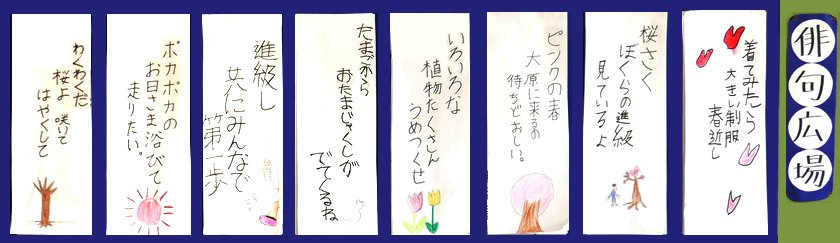 俳句広場
着てみたら
大きい制服
春近し
桜さく
ぼくらの進級
見ているよ
ピンクの春
大原に来るの
待ちどおしい。
いろいろな
植物たくさん
うめつくせ
たまごから
おたまじゃくしが
でてくるね
進級し
共にみんなで
第一歩
ポカポカの
お日さま浴びて
走りたい。
わくわくだ
桜よ咲いて
はやくして